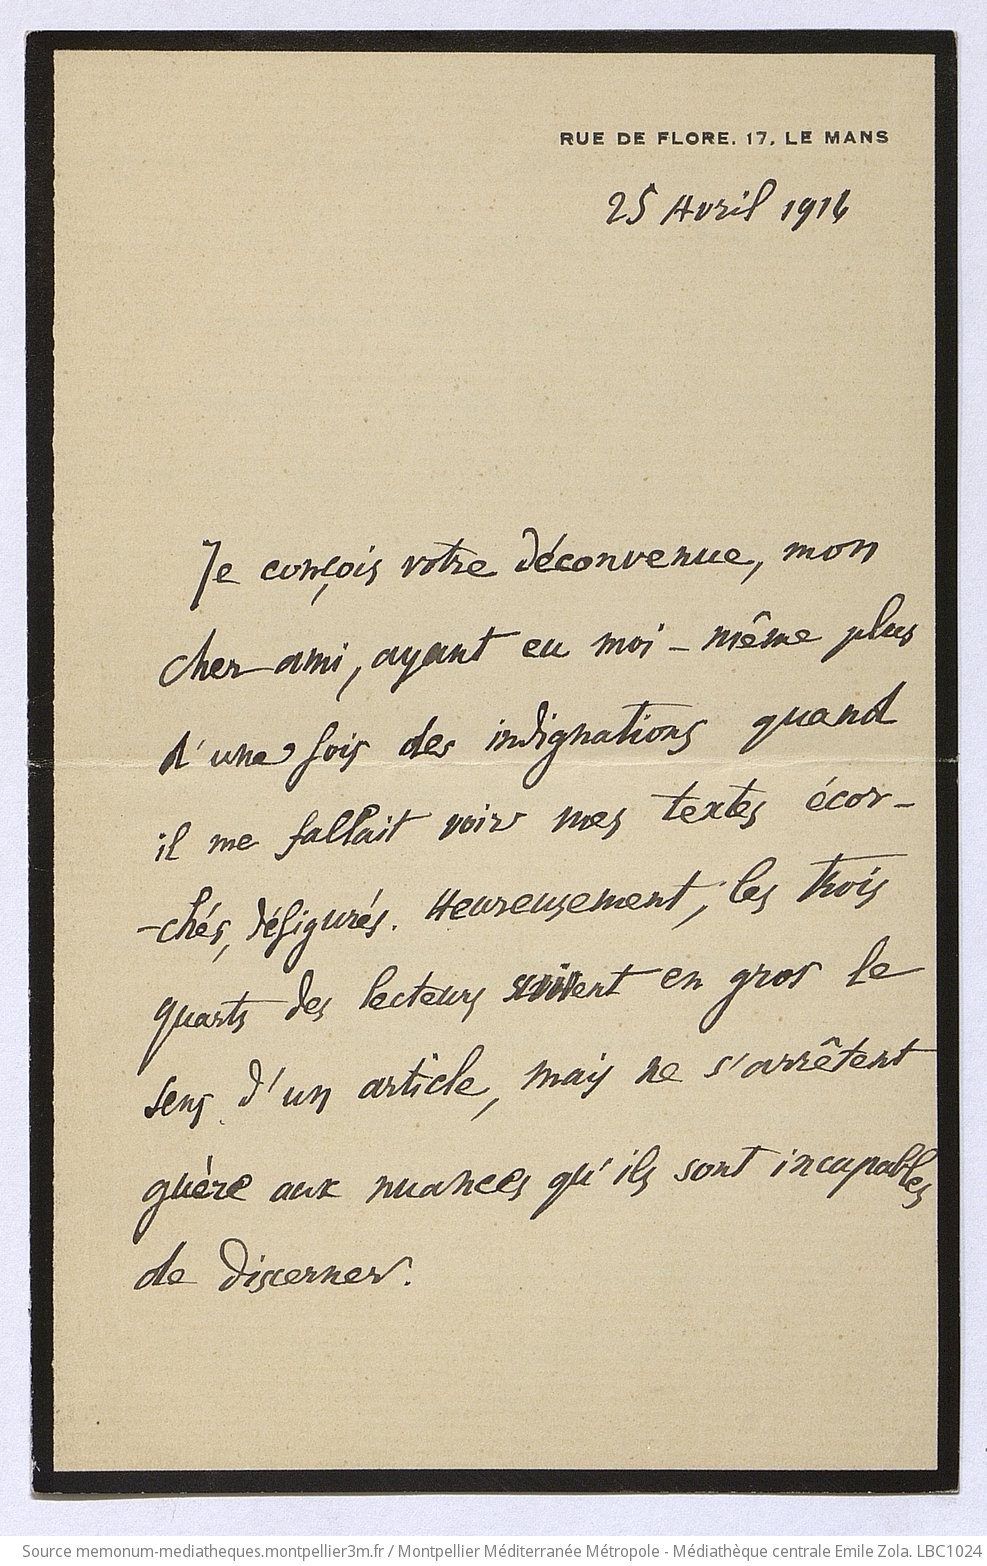 RUE DE FLORE. 17, LE MANS
25 Avril 1916
Je conçois votre déconvenue, mon
cher ami, ayant eu moi-même plus
d'une fois des indignations quand
il me fallait voir mes textes écor-
-chés, défigurés. Heureusement, les trois
quarts des lecteurs suivent en gros le
sens d'un article, mais ne s'arrêtent
guère aux nuances qu'ils sont incapables
de discerner.
Source memonum-mediatheques.montpellier3m.fr / Montpellier Méditerranée Métropole - Médiathèque centrale Emile Zola. LBC1024